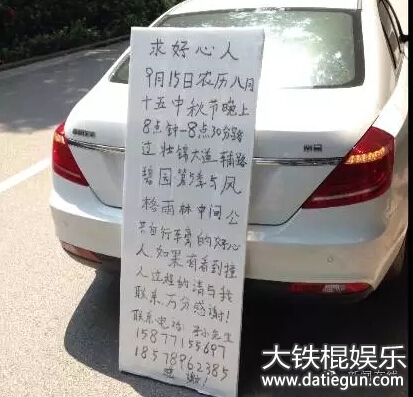 求好心人
9月15日农历八月
十五中秋节晚上
8点钟—8点30分路
过壮锦大道辅路
碧园 季与风
格雨林中间公
共自行车旁的好心
人如果有看到撞
人过程的请与我
联系,万分感谢!
联系电话: 先生
15877155697
18578962385
感谢!
大铁棍娱乐
www.datiegun.com